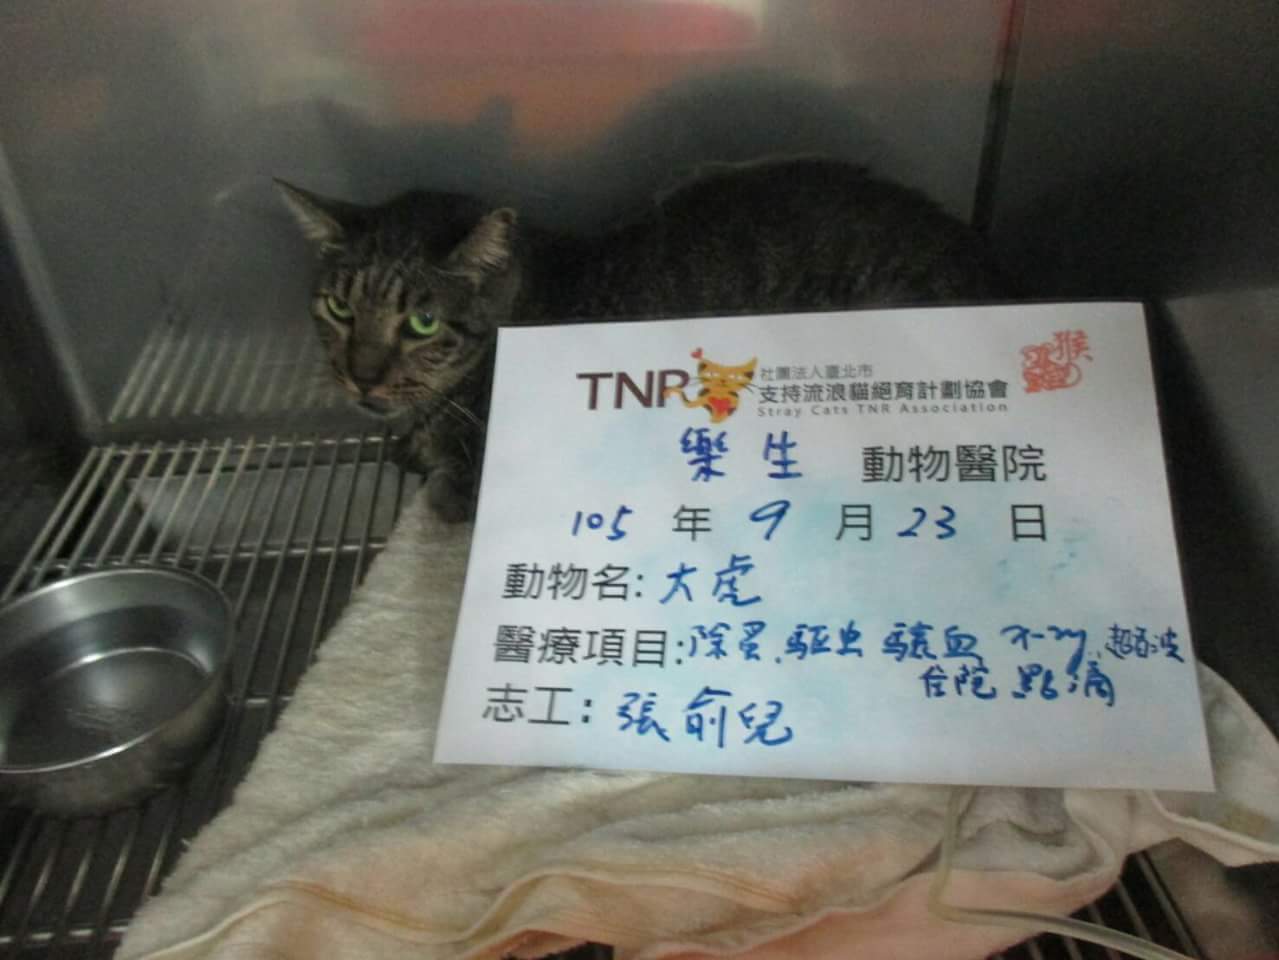 TNR 社團法人臺北市
支持流浪貓絕育計劃協會
Stray Cats TNR Association
猴
樂生 動物醫院
105 年 9 月 23 日
動物名: 大虎
醫療項目: 除蚤、驅虫 驗血 X-ray、超音波
住院 點滴
志工: 張俞兒